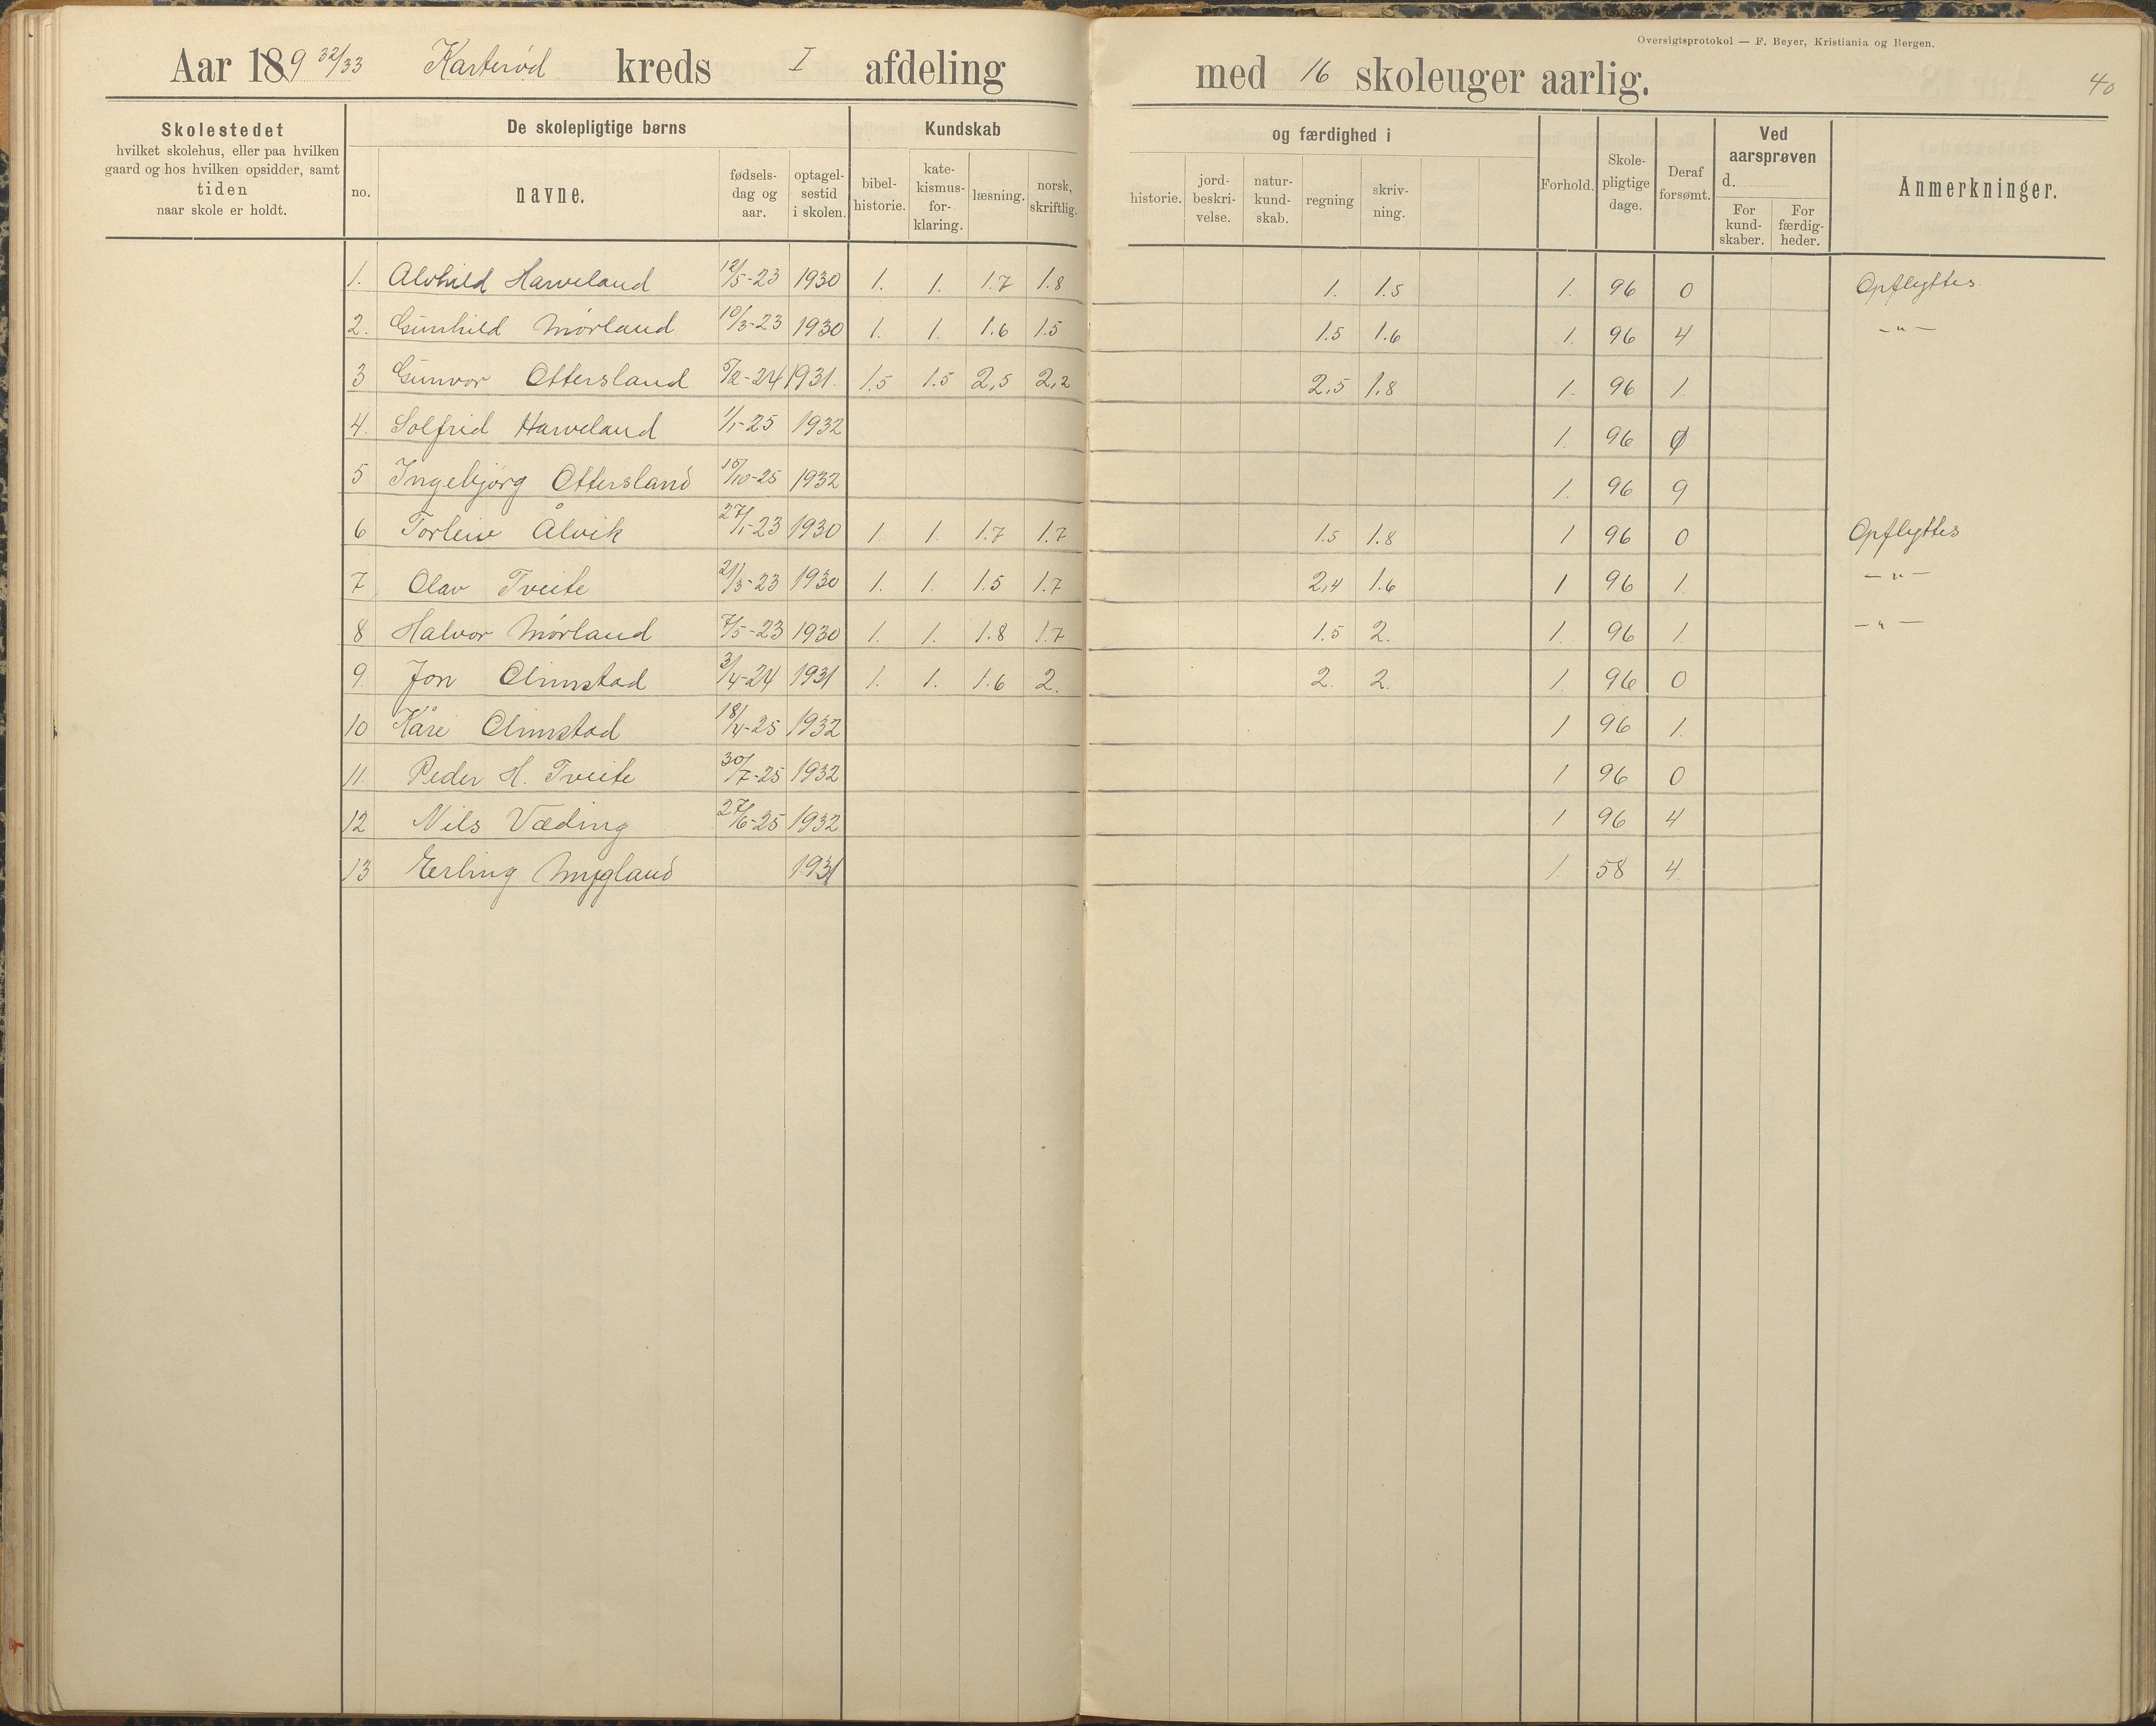 Oversigtsprotokol — F. Beyer, Kristiania og Bergen.
Aar 189 32/33 Karterød kreds I afdeling med 16 skoleuger aarlig. 40
Skolestedet
hvilket skolehus, eller paa hvilken
gaard og hos hvilken opsidder, samt
tiden
naar skole er holdt.
De skolepligtige børns
no.
navne.
fødsels-
dag og
aar.
optagel-
sestid
i skolen.
Kundskab
bibel-
historie.
kate-
kismus-
for-
klaring.
læsning.
norsk,
skriftlig.
og færdighed i
historie.
jord-
beskri-
velse.
natur-
kund-
skab.
regning
skriv-
ning.
Forhold.
Skole-
pligtige
dage.
Deraf
forsømt.
Ved
aarsprøven
d.
For
kund-
skaber.
For
færdig-
heder.
Anmerkninger.
1. Alvhild Harveland 12/5-23 1930 1. 1. 1.7 1.8 1. 1.5 1. 96 0 Opflyttes.
2. Gunhild Mørland 10/3-23 1930 1. 1. 1.6 1.5 1.5 1.6 1. 96 4 -"-
3 Gunvor Ottersland 5/2-24 1931. 1.5 1.5 2,5 2,2 2.5 1.8 1. 96 1.
4. Solfrid Harveland 1/1-25 1932 1. 96 0
5 Ingebjørg Ottersland 15/10-25 1932 1. 96 9
6 Torleiv Ålvik 27/1-23 1930 1. 1. 1.7 1.7 1.5 1.8 1 96 0 Opflyttes
7 Olav Tveite 21/3-23 1930 1. 1. 1.5 1.7 2,4 1.6 1 96 1. -"-
8 Halvor Mørland 7/5-23 1930 1. 1. 1.8 1.7 1.5 2. 1. 96 1. -"-
9. Jon Olimstad 3/4-24 1931 1. 1. 1.6 2. 2. 2. 1. 96 0
10 Kåre Olimstad 18/4-25 1932 1 96 1.
11. Peder H. Tveite 30/7-25 1932 1 96 0
12 Nils Væding 27/6-25 1932 1 96 4
13 Erling Mygland 1931 1. 58 4.